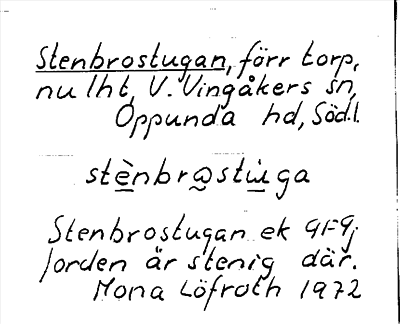 Stenbrostugan, förr torp,
nu lht, V. Vingåkers sn,
Oppunda hd, Södl.
stènbrω̞stɯga
Stenbrostugan ek 9F9j
Jorden är stenig där.
Mona Löfroth 1972